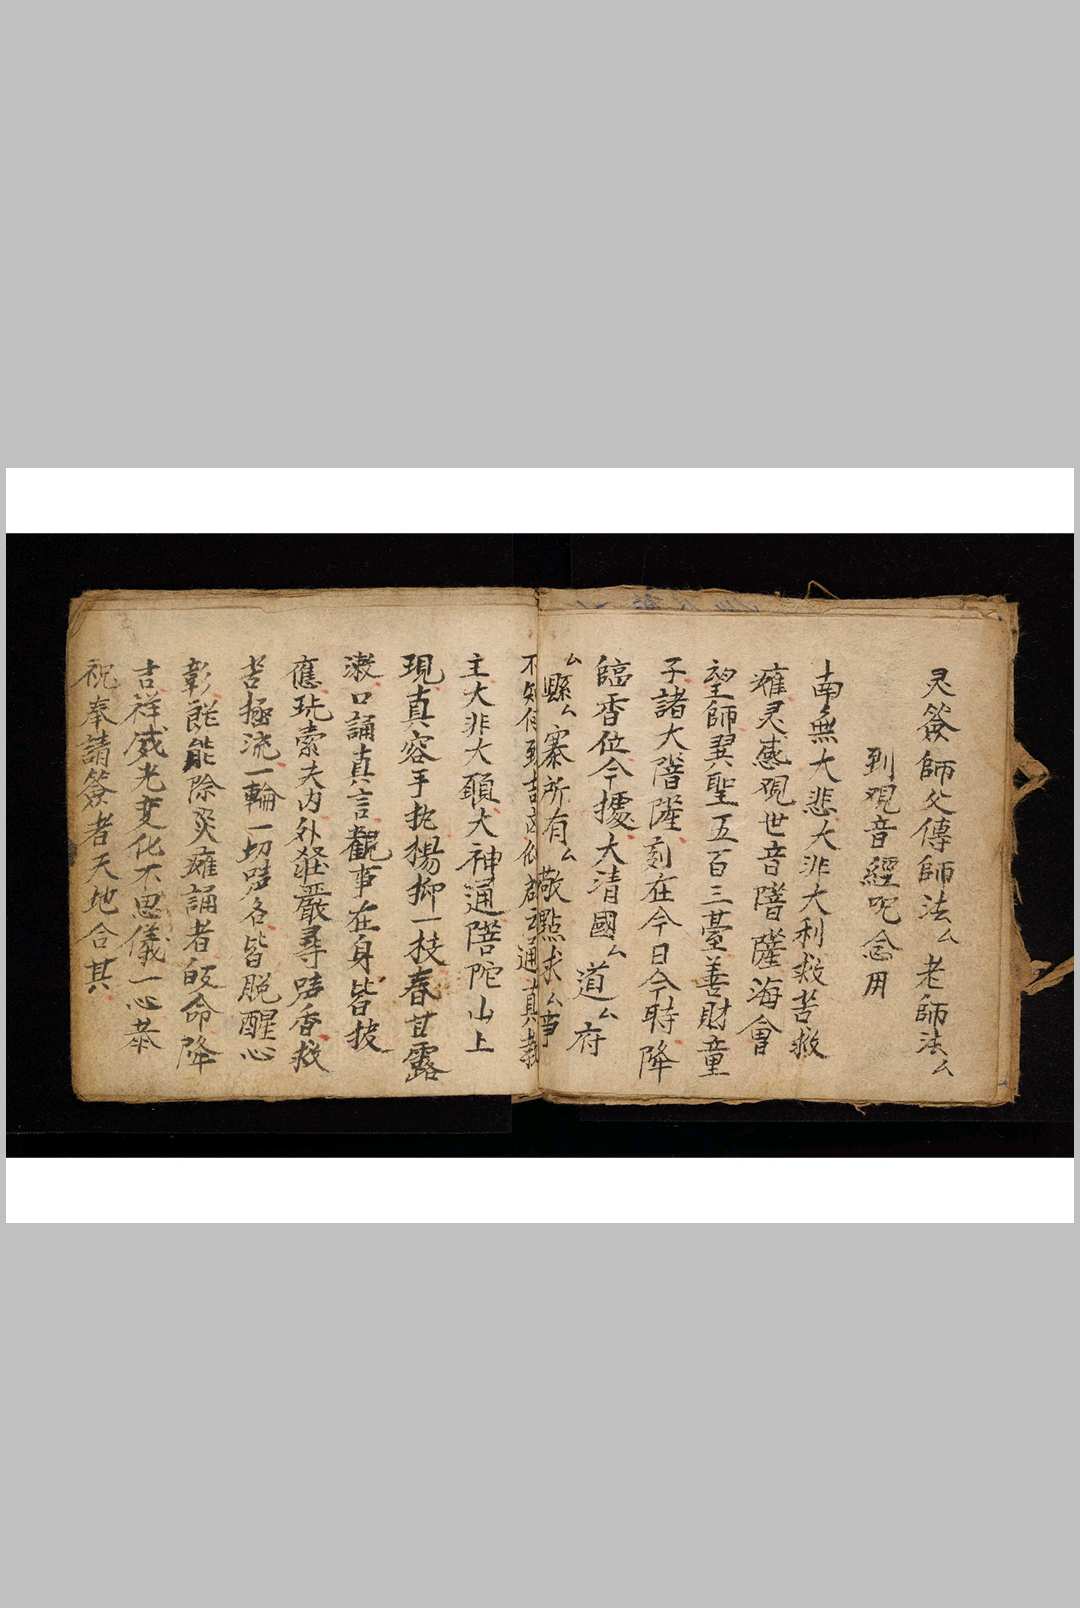 灵簽師父傳師法厶老師法厶
到观音經呪念用
南無大悲大非大利救苦救
癕灵感观世音𨻶薩海會
望師巽聖五百三臺善財童
子諸大𨻶薩刻在今日今時降
臨香位今據大清國厶道厶府
厶縣厶寨所有厶敬點求厶事
不知何到吉凶通真教
主大非大願大神通菩陀山上
現真容手扢楊柳一枝春甘露
漱口誦真言觀事在身皆披
應玩索夫内外莊嚴尋声香救
苦極流一輪一切声各皆脱醒心
彰能除災癕誦者皈命降
吉祥威光变化不思儀一心恭
祝奉請簽者天地合其